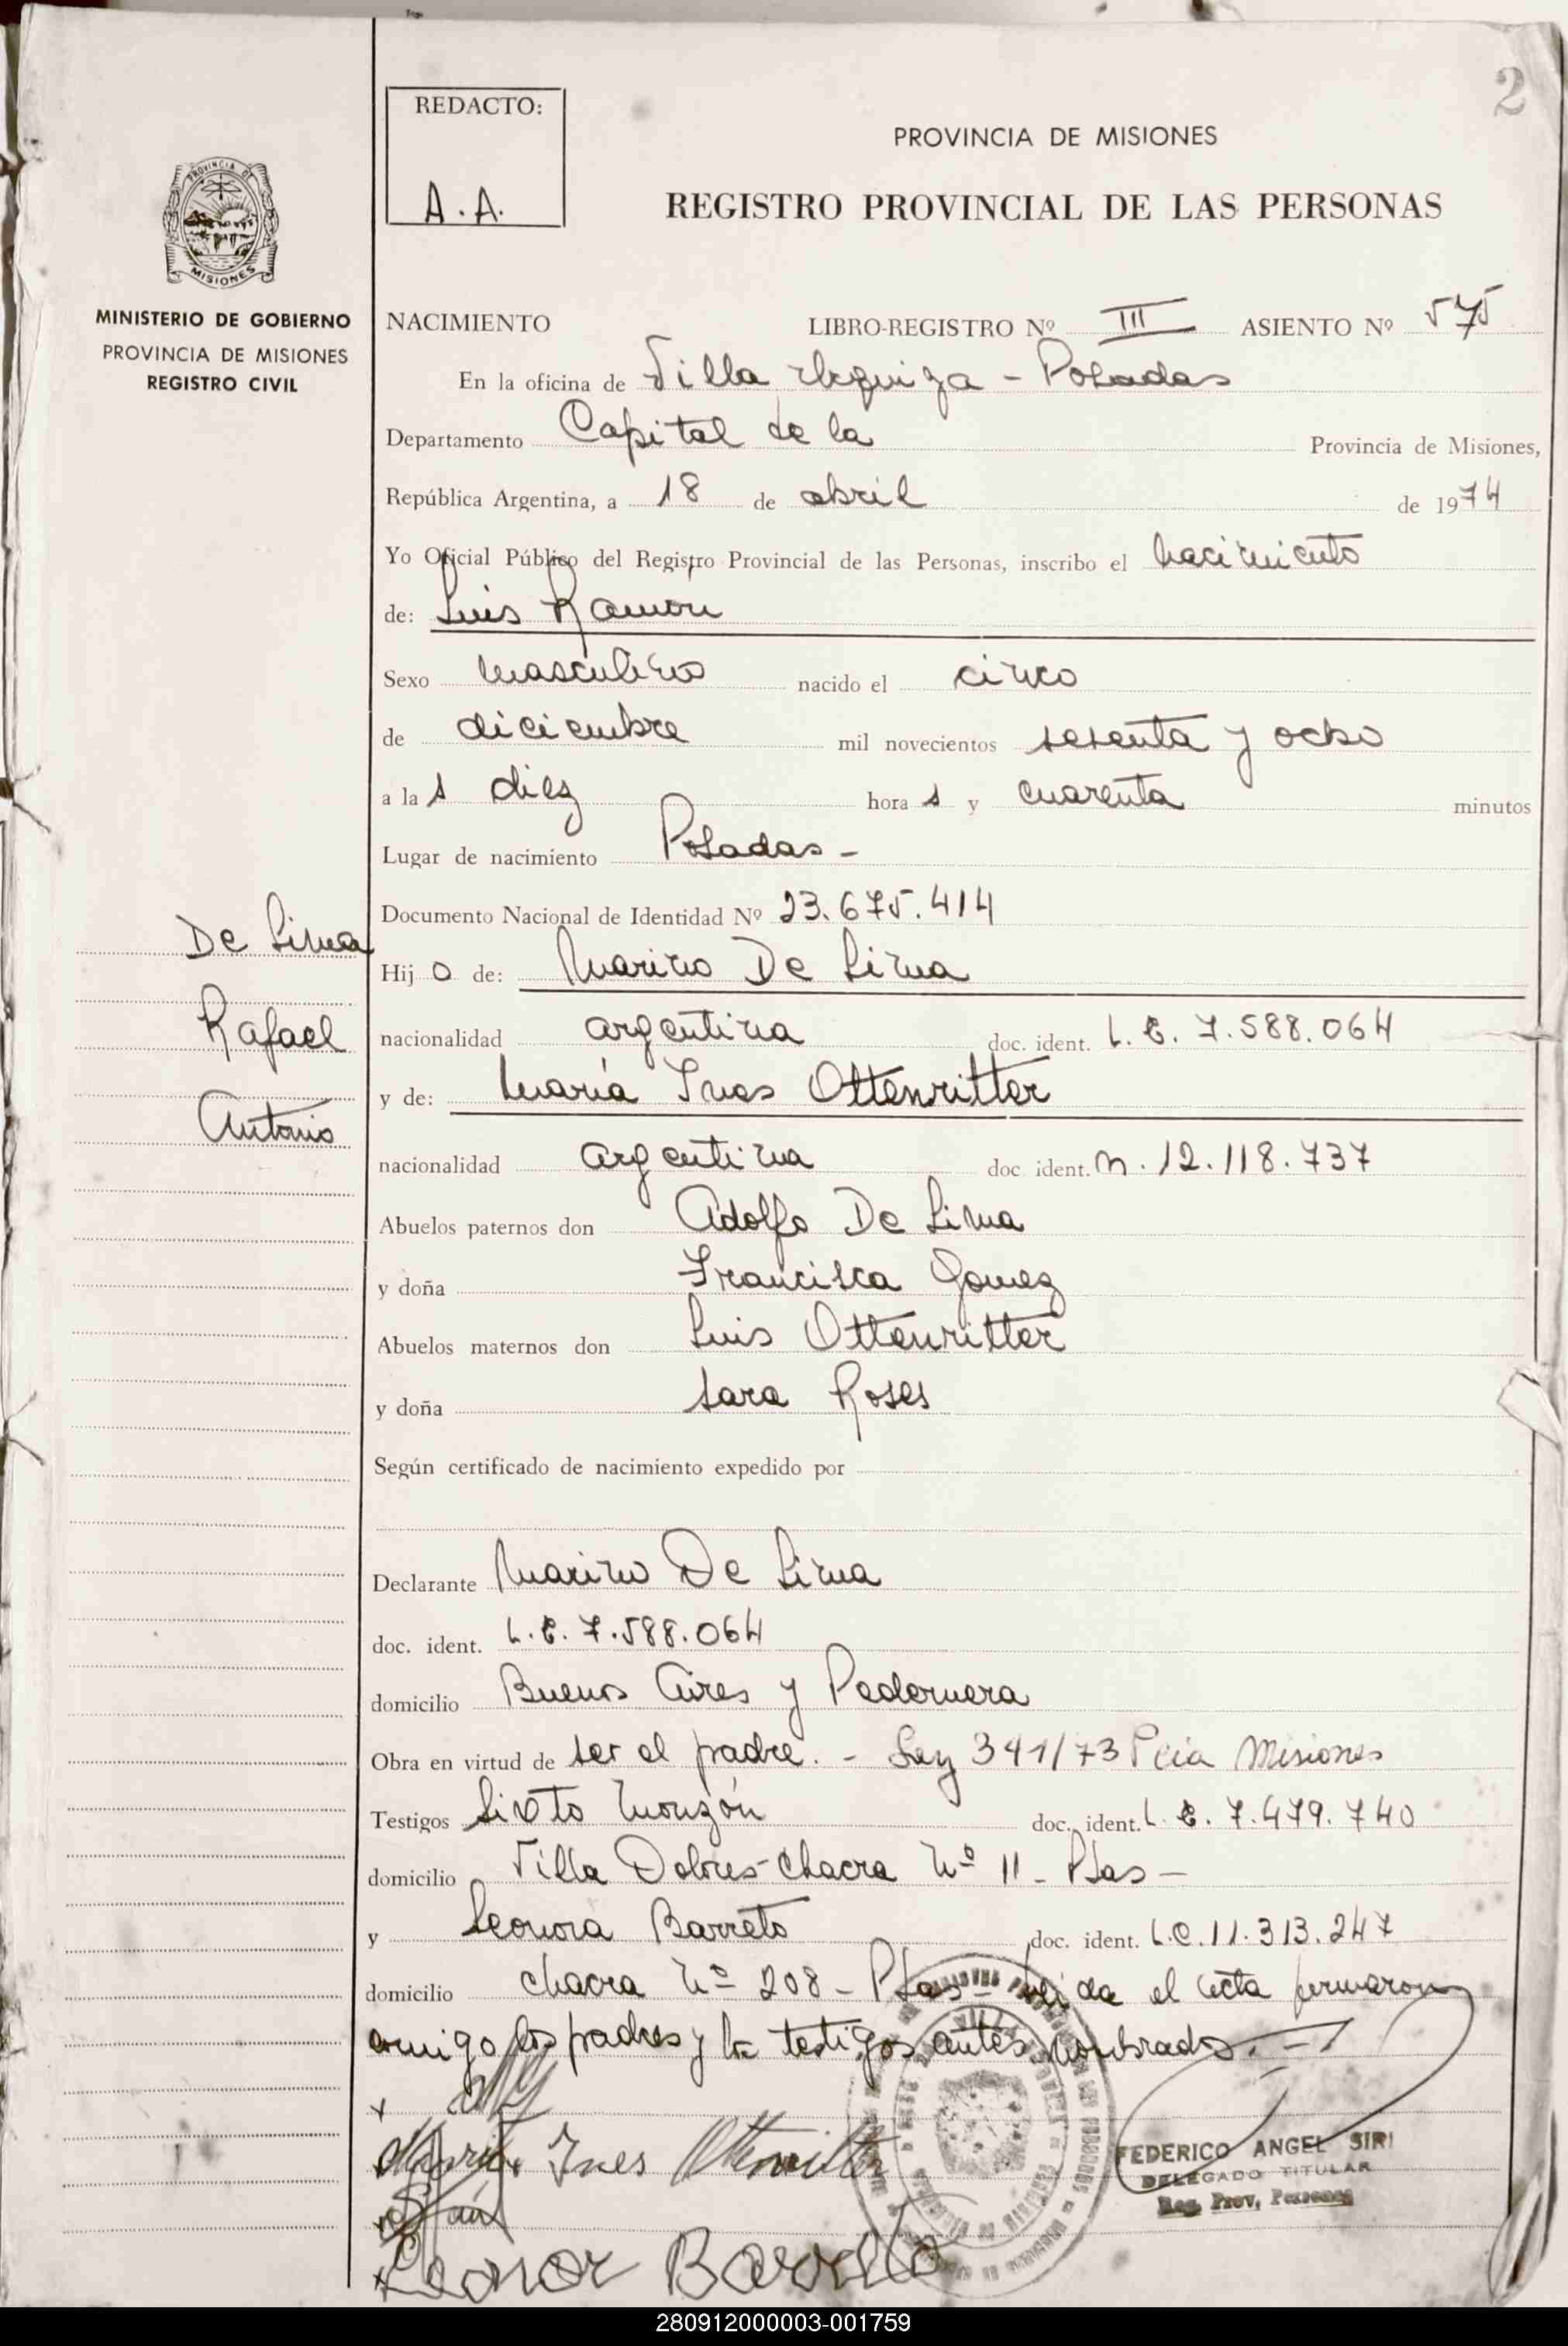 2
REDACTO:
A.A.
PROVINCIA DE MISIONES
REGISTRO PROVINCIAL DE LAS PERSONAS
PROVINCIA DE
MISIONES
MINISTERIO DE GOBIERNO
PROVINCIA DE MISIONES
REGISTRO CIVIL
NACIMIENTO LIBRO-REGISTRO Nº III ASIENTO Nº 575
En la oficina de Villa Urquiza - Posadas
Departamento Capital de la Provincia de Misiones,
República Argentina, a 18 de abril de 1974
Yo Oficial Público del Registro Provincial de las Personas, inscribo el nacimiento
de: Luis Ramon
Sexo masculino nacido el cinco
de diciembre mil novecientos sesenta y ocho
a la s diez hora s y cuarenta minutos
Lugar de nacimiento Posadas -
Documento Nacional de Identidad Nº 23.675.414
De Lima
Rafael
Antonio
Hij o de: Marino De Lima
nacionalidad argentina doc. ident. L.E. 7.588.064
y de: María Ines Ottenritter
nacionalidad argentina doc. ident. n. 12.118.737
Abuelos paternos don Adolfo De Lima
y doña Francisca Gomez
Abuelos maternos don Luis Ottenritter
y doña Sara Roses
Según certificado de nacimiento expedido por
Declarante Marino De Lima
doc. ident. L.E. 7.588.064
domicilio Buenos Aires y Pedernera
Obra en virtud de ser el padre. - Ley 341/73 Pcia Misiones
Testigos Sixto Monzón doc. ident. L.E. 7.479.740
domicilio Villa Dolores-chacra Nº 11 - Psas -
y Leonora Barreto doc. ident. L.C. 11.313.247
domicilio chacra Nº 208 - Psas - leida el acta firmaron
conmigo los padres y los testigos antes nombrados. -
Maria Ines Ottenritter
FEDERICO ANGEL SIRI
DELEGADO TITULAR
Reg. Prov. Personas
Leonor Barreto
280912000003-001759